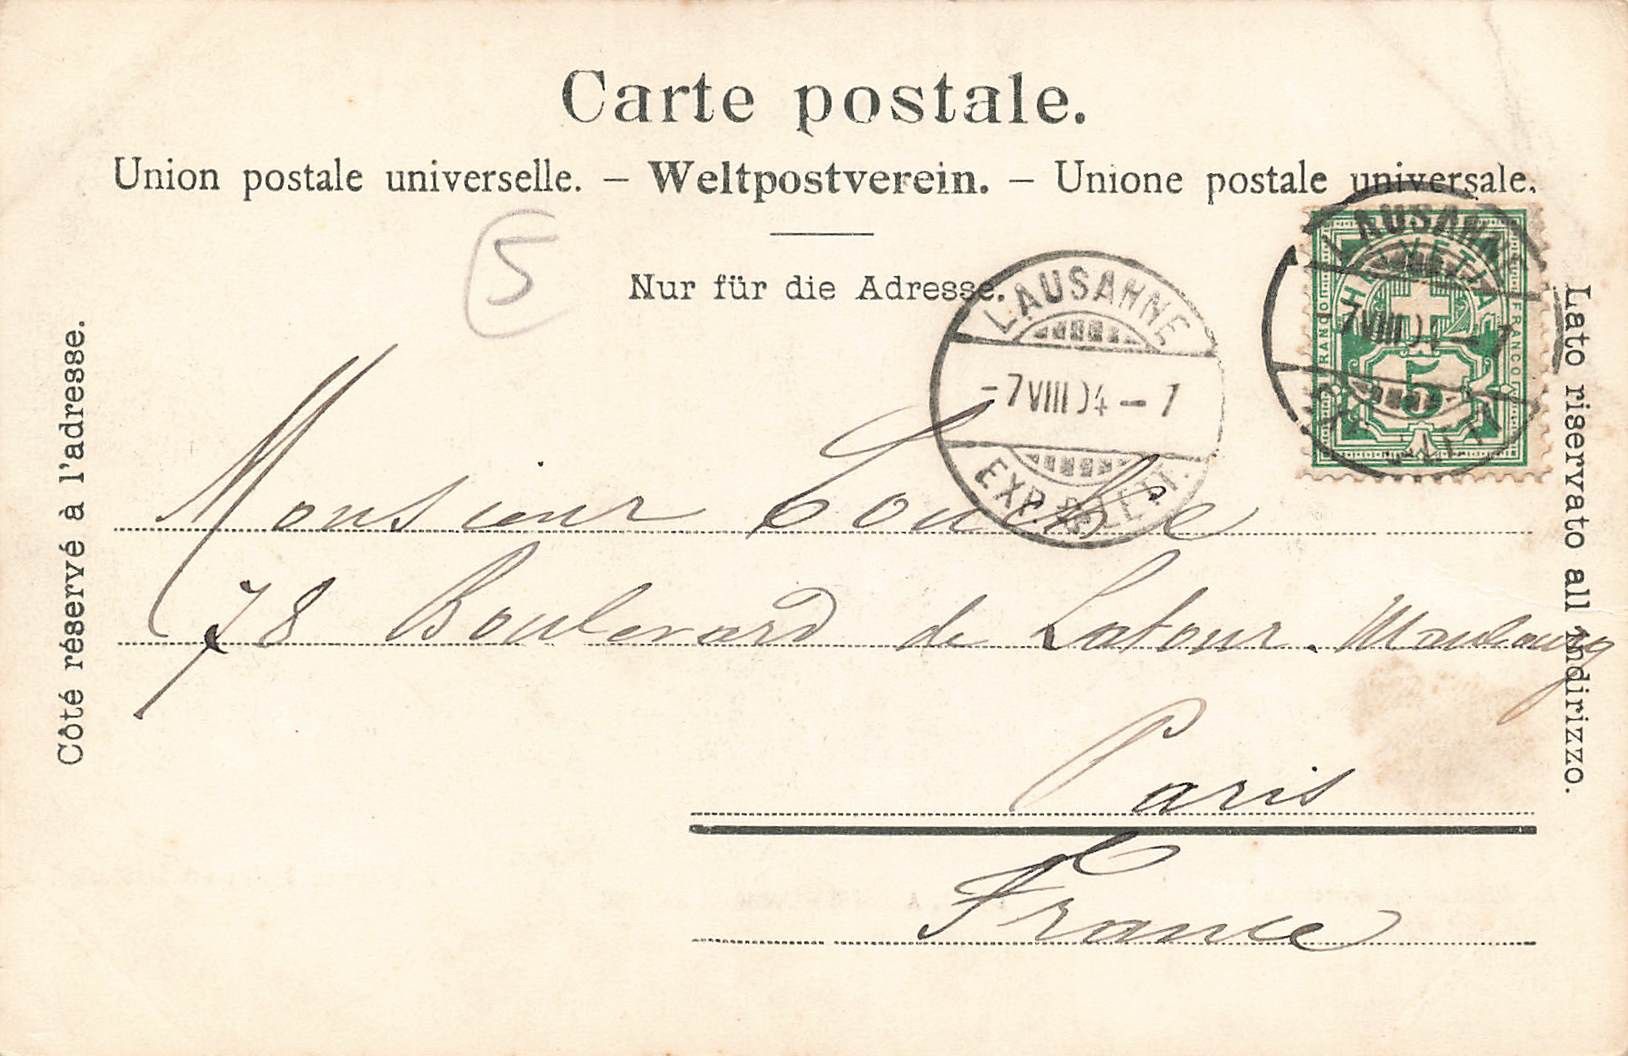 Carte postale.
Union postale universelle. – Weltpostverein. – Unione postale universale.
5
Nur für die Adresse.
Côté réservé à l'adresse.
Lato riservato all'indirizzo.
LAUSANNE
-7 VIII 04 - 7
EXP. LETT.
LAUSANNE
7 VIII 04 - 7
EXP. LETT.
HELVETIA
FRANCO
FRANCO
5
Monsieur
78 Boulevard de Latour. Maubourg
Paris
France